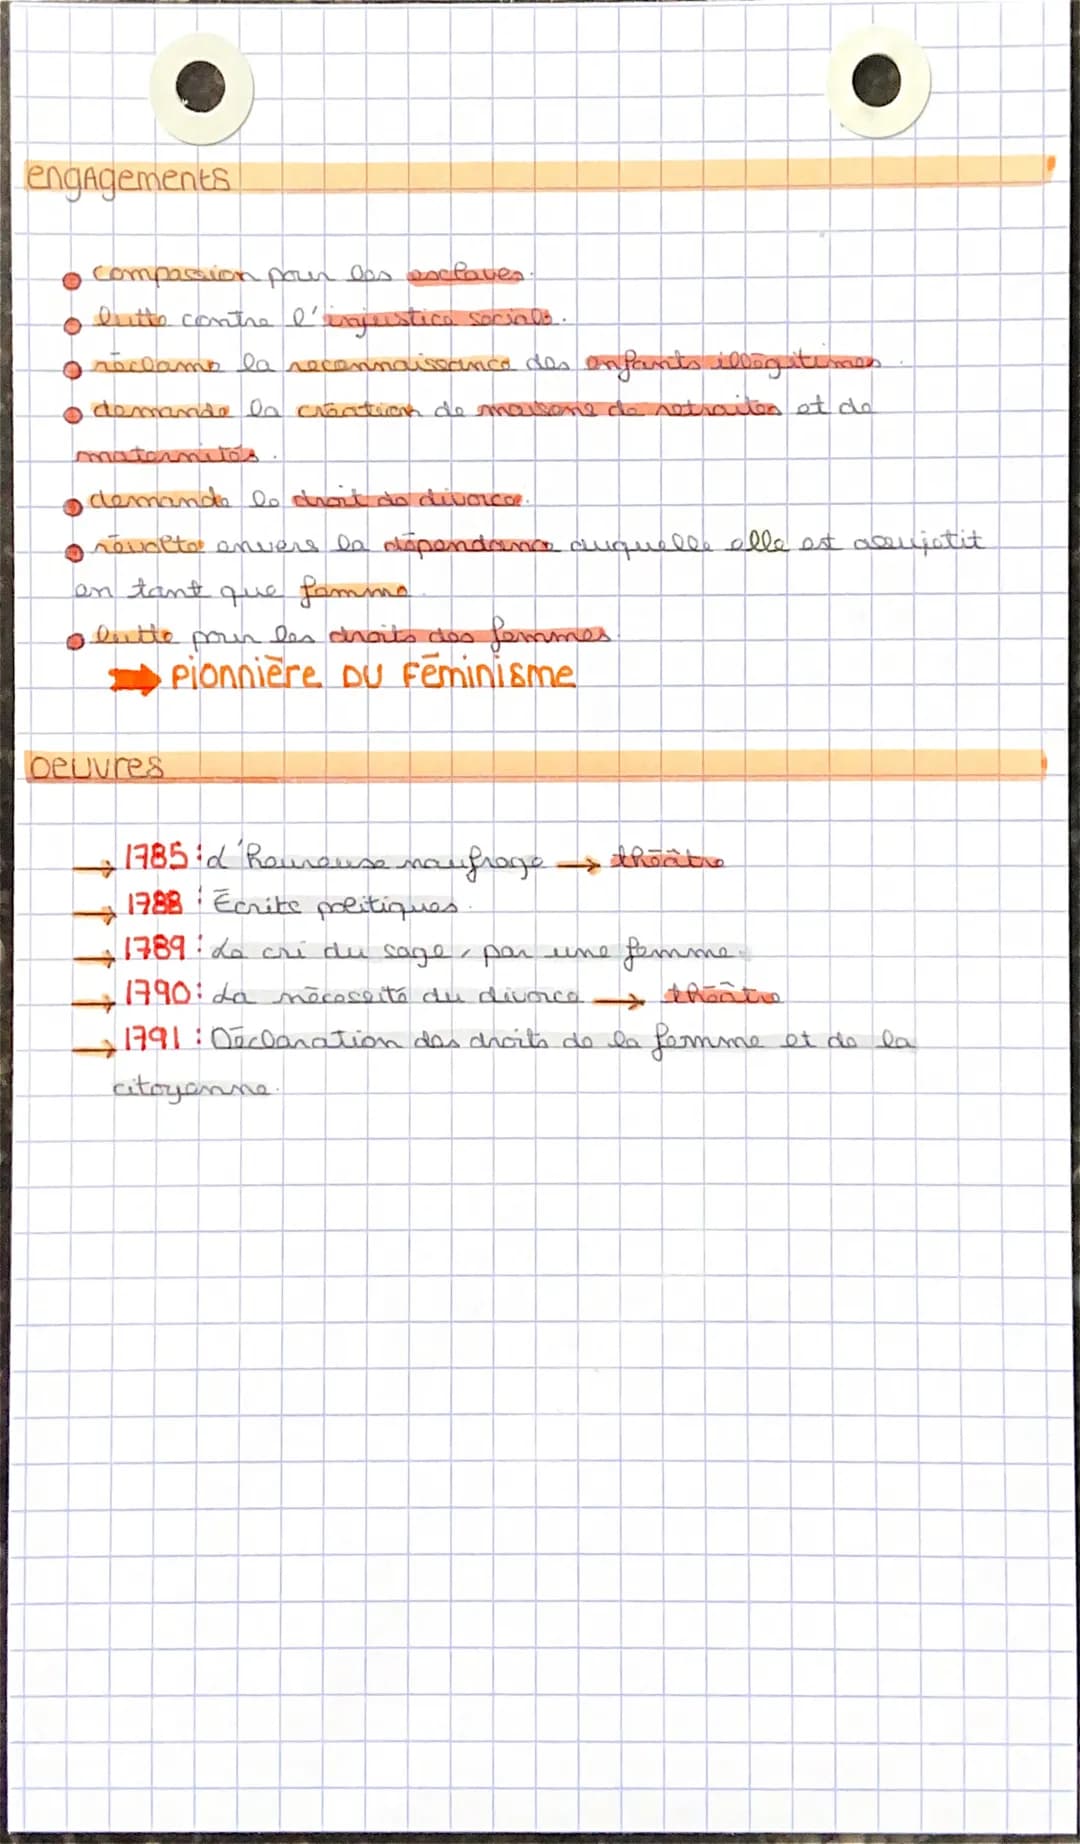 engAgements
compassion pour les esclaves.
lutte contre l'injustice sociale.
réclame la reconnaissance des enfants illégitimes.
demande la création de maisons de retraites et de
maternités.
demande le droit de divorce.
révolte envers la dépendance auquelle elle est assujetit
en tant que femme.
lutte pour les droits des femmes.
➡ Pionnière DU Féminisme
oeuvres
→ 1785 : d'Heureuse naufrage → théâtre
→ 1788 : Écrits politiques.
→ 1789 : Le cri du sage, par une femme.
→ 1790 : La nécessité du divorce → théâtre
→ 1791 : Déclaration des droits de la femme et de la
citoyenne.